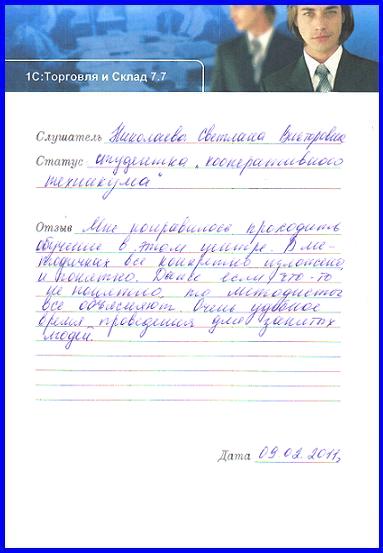 1С:Торговля и Склад 7.7
Слушатель Николаева Светлана Викторовна
Статус студентка "кооперативного
техникума"
Отзыв Мне понравилось проходить
обучение в этом центре. В ме-
тодичках все конкретно изложено
и понятно. Даже если что-то
не понятно, то методисты
все объясняют. Очень удобное
время проведения для занятых
людей.
Дата 09.02.2011г